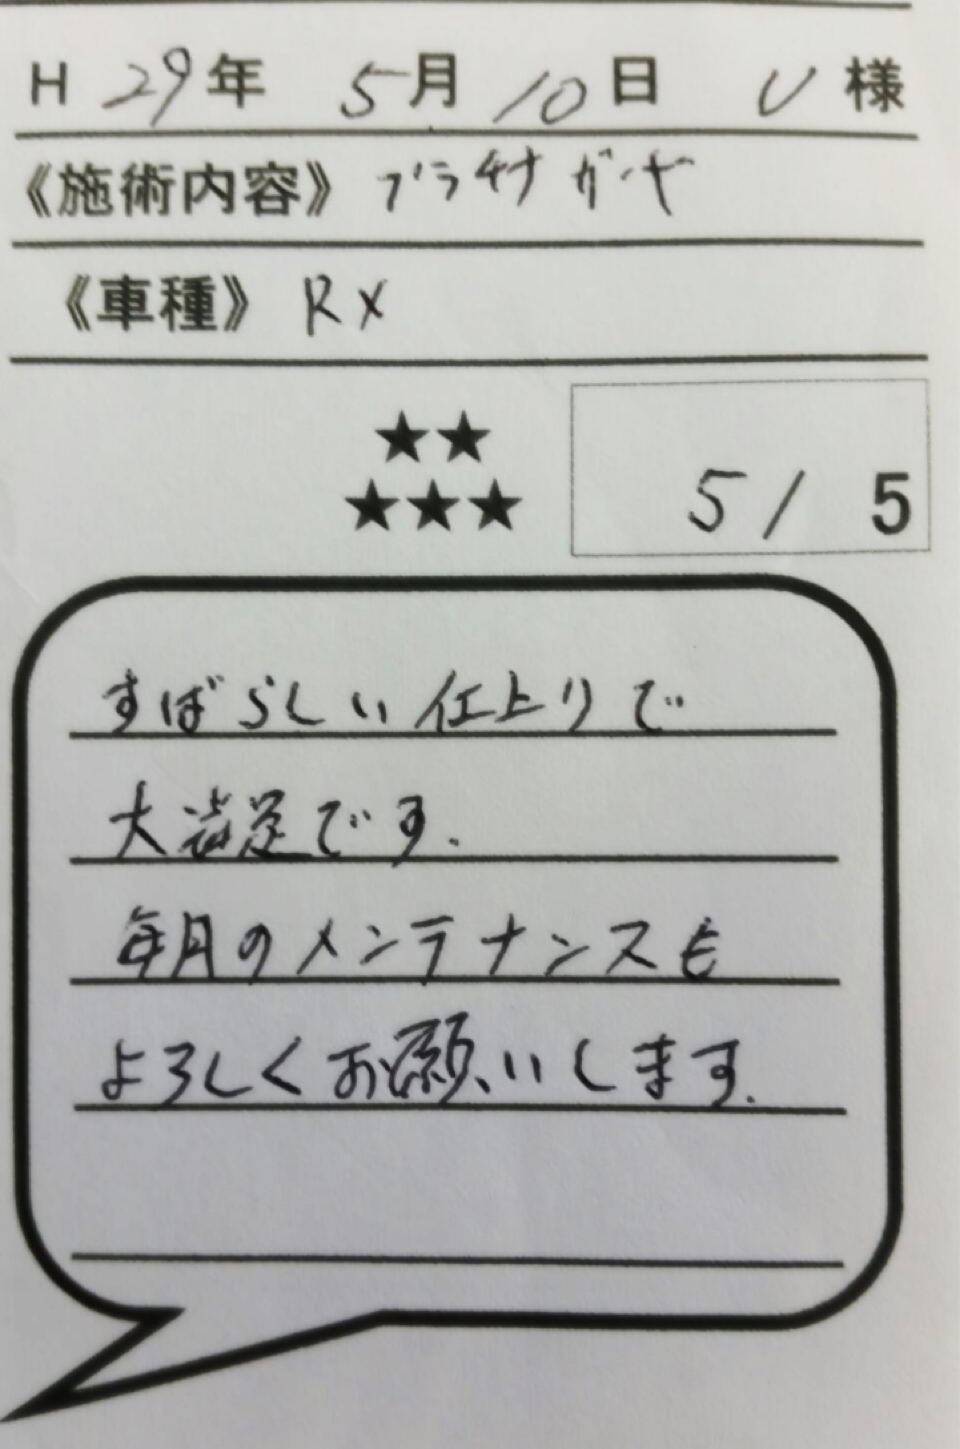 H 29年 5月10日 U様
《施術内容》プラチナ ガーヤ
《車種》RX
★★
★★★
5/5
すばらしい仕上りで
大満足です.
年月のメンテナンスも
よろしくお願いします.